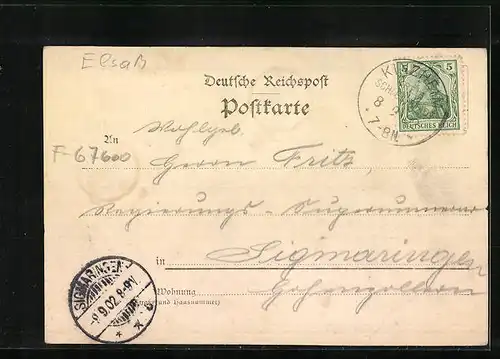 Elsaß
Deutsche Reichspost
Postkarte
5
DEUTSCHES REICH
8
7-8N
Wohlgeb.
An
F-67600
Herrn Fritz
Regierungs-
in Sigmaringen
Hohenzollern
Wohnung
(Straße und Hausnummer)
SIGMARINGEN
9.02.8-9V.